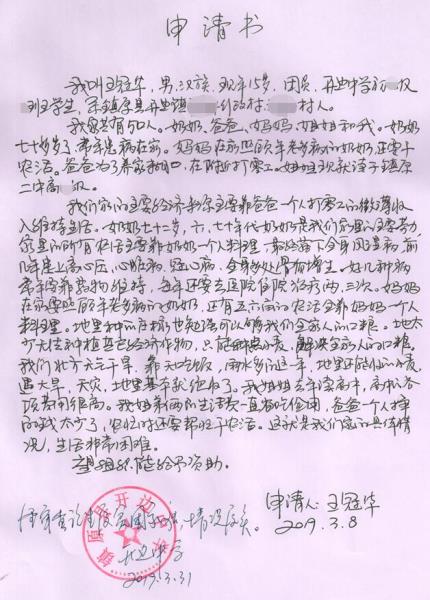 申请书
我叫王冠华，男，汉族，现年15岁，团员，开边中学初 级
班学生，系镇原县开边镇 行政村 村人。
我家共有五口人。奶奶、爸爸、妈妈、姐姐和我。奶奶
七十多岁了，常年患病在家。妈妈在家照顾年老多病的奶奶还要干
农活。爸爸为了养家糊口，在附近打零工。姐姐现就读于镇原
二中高 级。
我们家的主要经济来源主要靠爸爸一个人打零工的微薄收
入维持生活。奶奶七十二岁，六、七十年代奶奶是我们家里的主要劳力
家里的所有农活主要靠奶奶一个人料理，最终落下全身风湿病，前
几年患上高心压，心脏病，冠心病，全身多处骨质增生。好几种病
常年需靠药物维持，每年还要去医院住院治疗两、三次。妈妈
在家要照顾年老多病的奶奶，还有五六亩的农活全靠妈妈一个人
料理。地里种的庄稼也勉强可以够我们全家人的口粮。地太
少无法种植其它经济作物，只能种小麦，解决全家人的口粮，
我们北方天气干旱，靠天吃饭，雨水多的这一年，地里还能收小麦，
遇大旱，天灾，地里基本就绝收了。我姐姐去年读高中，高中各
项费用很高。我姐弟俩的生活费一直省吃俭用，爸爸一个人挣
的钱太少了，农忙时还要帮助干农活。这就是我们家的具体情
况，生活非常困难。
望组织能给予资助。
申请人：王冠华
2019.3.8
情况属实。
镇原县开边
2019.3.31